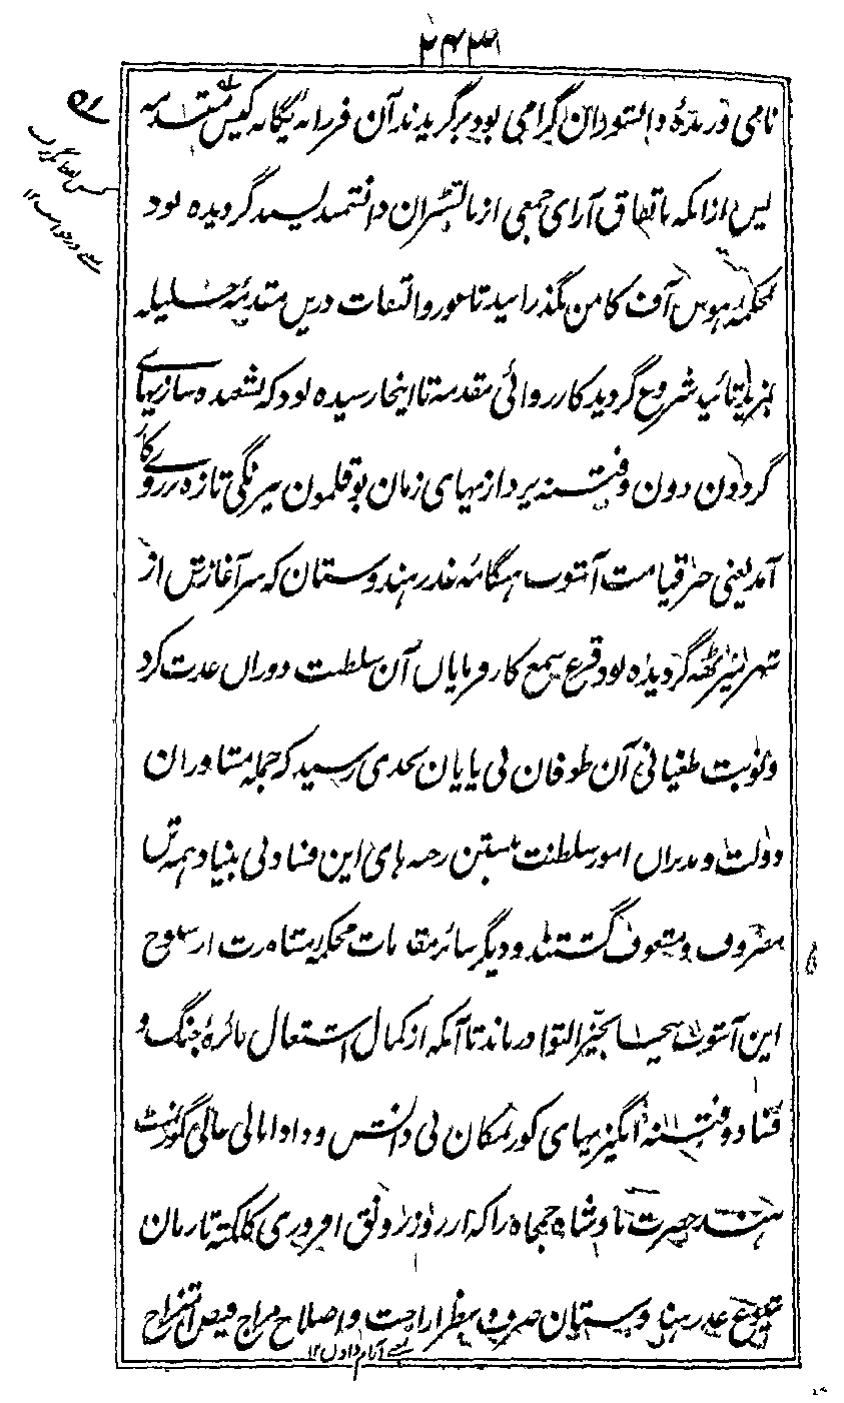 ۲۴۳
نامی و زبدهٔ دانشوران گرامی بود برگزیدند آن فرزانه یگانه کیس مقدمه
پس ازانکه باتفاق آرای جمعی از بالشتران دانشمند پسند گردیده بود
بمحکمه هوس آف کامن بگذرانید تا غور و التفات درین مقدمهٔ جلیله
بمزید تائید شروع گردید کارروائی مقدمه تا اینجا رسیده بود که شعبده سازیهای
گردون دون و فتنه پردازیهای زمان بوقلمون نیرنگی تازه بر روی کار
آمد یعنی خبر قیامت آشوب هنگامهٔ غدر هندوستان که سر آغازش از
شهر میرٹھه گردیده بود قرع سمع کارفرمایان آن سلطنت دوران عدت کرد
و نوبت طغیانی آن طوفان بی پایان بحدی رسید که جمله مشاوران
دولت و مدبران امور سلطنت ببستن رخنه های این فساد بی بنیاد همه تن
مصروف و مشعوف گشتند و دیگر سائر مقدمات محکمهٔ مشاورت از سنوح
این آشوب بحیز التوا درماند تا آنکه از کمال اشتعال نائرهٔ جنگ و
فساد و فتنه انگیزیهای کورنمکان بی دانش و داد اهالی عالی گورنمنٹ
هند حضرت بادشاه جمجاه را که از روز رونق افروزی کلکته تا زمان
شیوع غدر هندوستان صرف و نظر ارحت و اصلاح مزاج فیض امتزاج
یعنی آرام دادن ۱۲